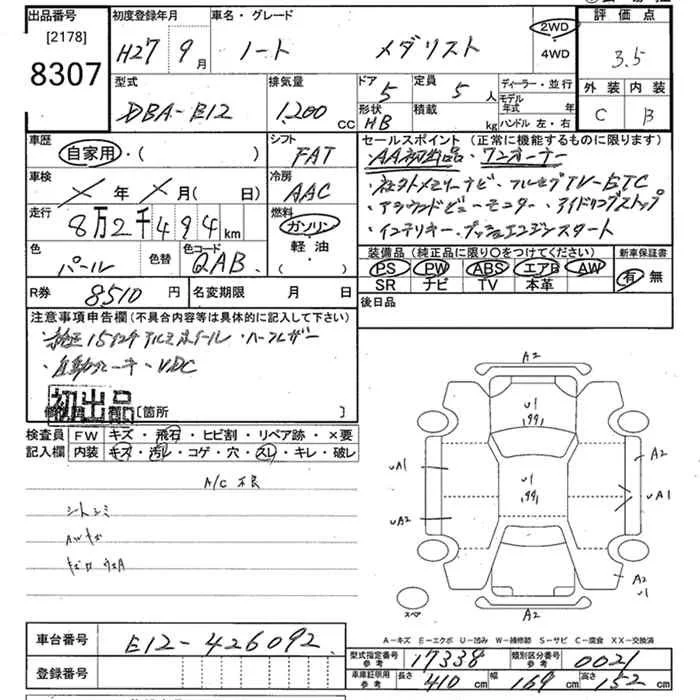 出品番号 初度登録年月 車名・グレード 評価点
[2178] H27 9月 ノート メダリスト 2WD 3.5
8307 4WD
型式 排気量 ドア 定員 ディーラー・並行 外装 内装
DBA-E12 1,200 cc 5 5人 モデル年式 年 C B
形状 積載 ハンドル 左・右
HB kg
車歴 シフト セールスポイント(正常に機能するものに限ります)
自家用・( ) FAT ・AA初出品・ワンオーナー
車検 冷房 ・社外メモリーナビ・フルセグTV・ETC
× 年 × 月( 日) AAC ・アラウンドビューモニター・アイドリングストップ
走行 燃料 ・インテリキー・プッシュエンジンスタート
8万2千494km ガソリン
色 色替 色コード 軽油 装備品(純正品に限り○をつけてください) 新車保証書
パール QAB ・( ) PS PW ABS エアB AW 有 無
SR ナビ TV 本革
R券 8510円 名変期限 月 日 後日品
注意事項申告欄(不具合内容等は具体的に記入して下さい)
・純正15インチアルミホイール・ハーフレザー
・自動ブレーキ・VDC
初出品
[箇所 ]
検査員 FW キズ・飛石・ヒビ割・リペア跡・×要
記入欄 内装 キズ・汚レ・コゲ・穴・スレ・キレ・破レ
A/C 不良
シートシミ
AWキズ
A2
U1
,99,
UA1 A2
U1
,99, UA1
UA2
A2
U1
スペア A2
A-キズ E-エクボ U-凹み W-補修跡 S-サビ C-腐食 XX-交換済
車台番号 E12-426092
型式指定番号 参考 17338 類別区分番号 参考 0021
登録番号 車庫証明用 参考 長さ 410cm 幅 169cm 高さ 152cm